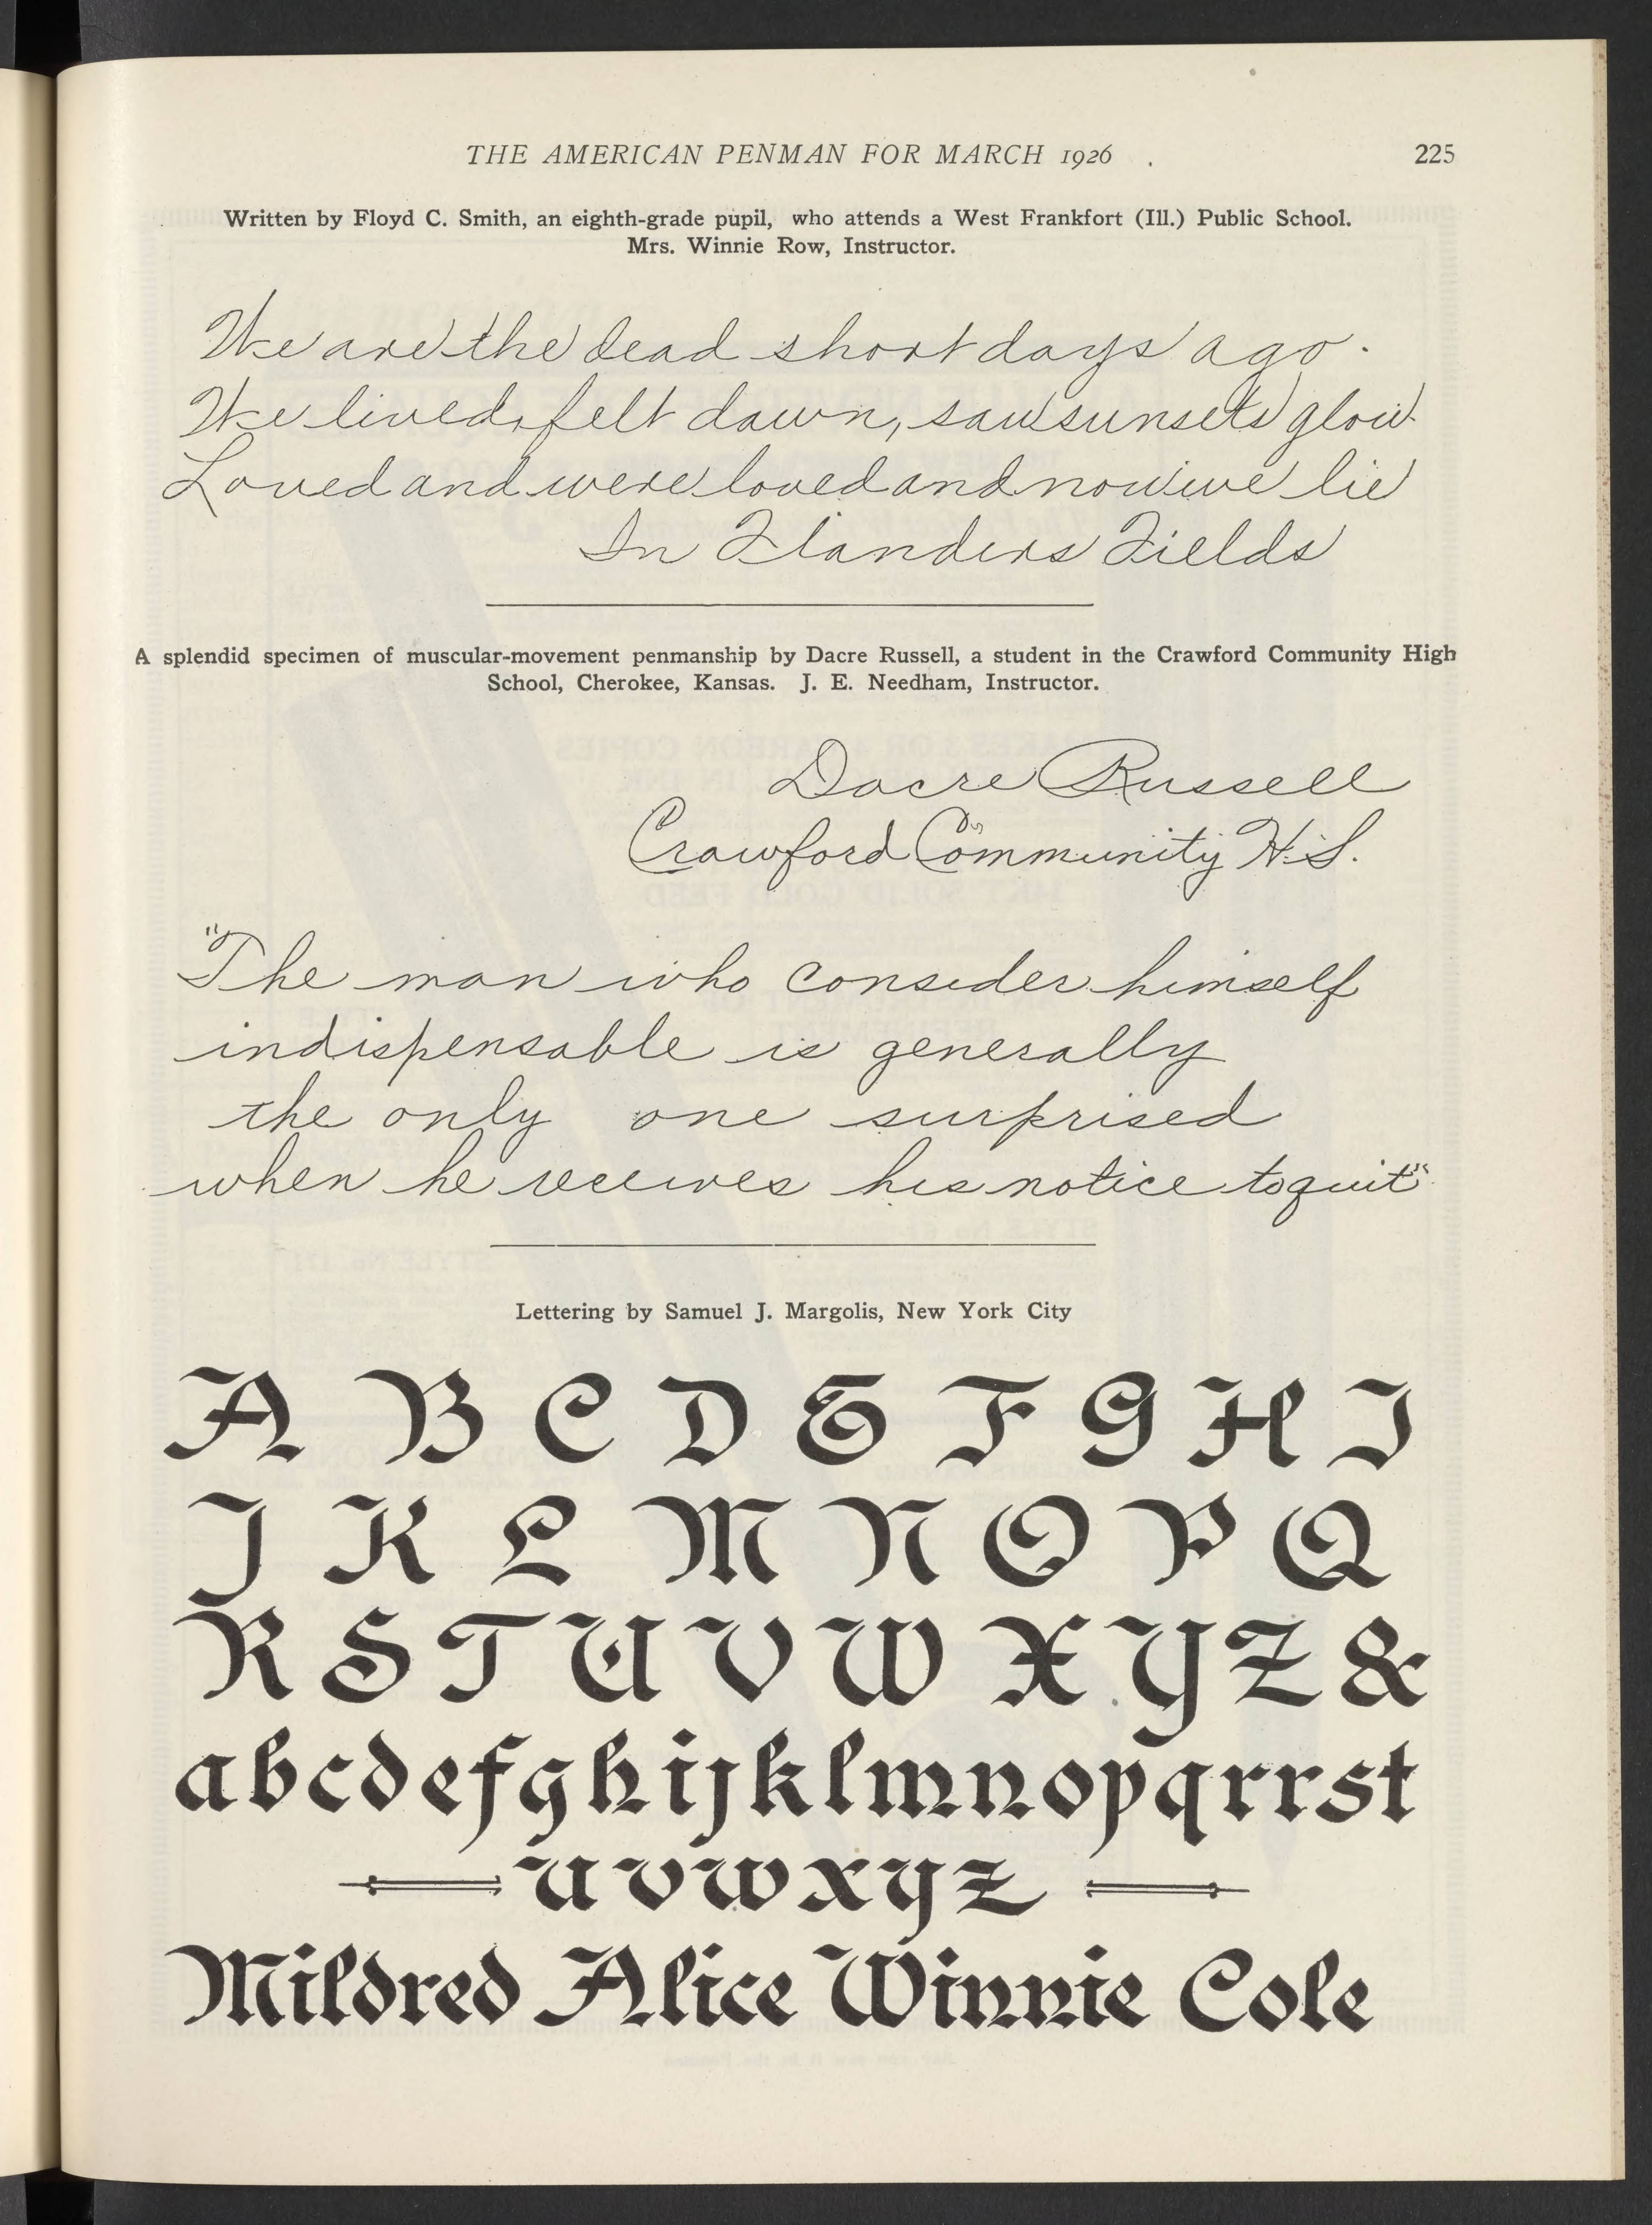 THE AMERICAN PENMAN FOR MARCH 1926 225
Written by Floyd C. Smith, an eighth-grade pupil, who attends a West Frankfort (Ill.) Public School.
Mrs. Winnie Row, Instructor.
We are the dead short days ago.
We lived, felt dawn, saw sunsets glow
Loved and were loved and now we lie
In Flanders Fields
A splendid specimen of muscular-movement penmanship by Dacre Russell, a student in the Crawford Community High
School, Cherokee, Kansas. J. E. Needham, Instructor.
Dacre Russell
Crawford Community H.S.
"The man who consider himself
indispensable is generally
the only one surprised
when he receives his notice to quit"
Lettering by Samuel J. Margolis, New York City
A B C D E F G H I
J K L M N O P Q
R S T U V W X Y Z &
a b c d e f g h i j k l m n o p q r r s t
u v w x y z
Mildred Alice Winnie Cole